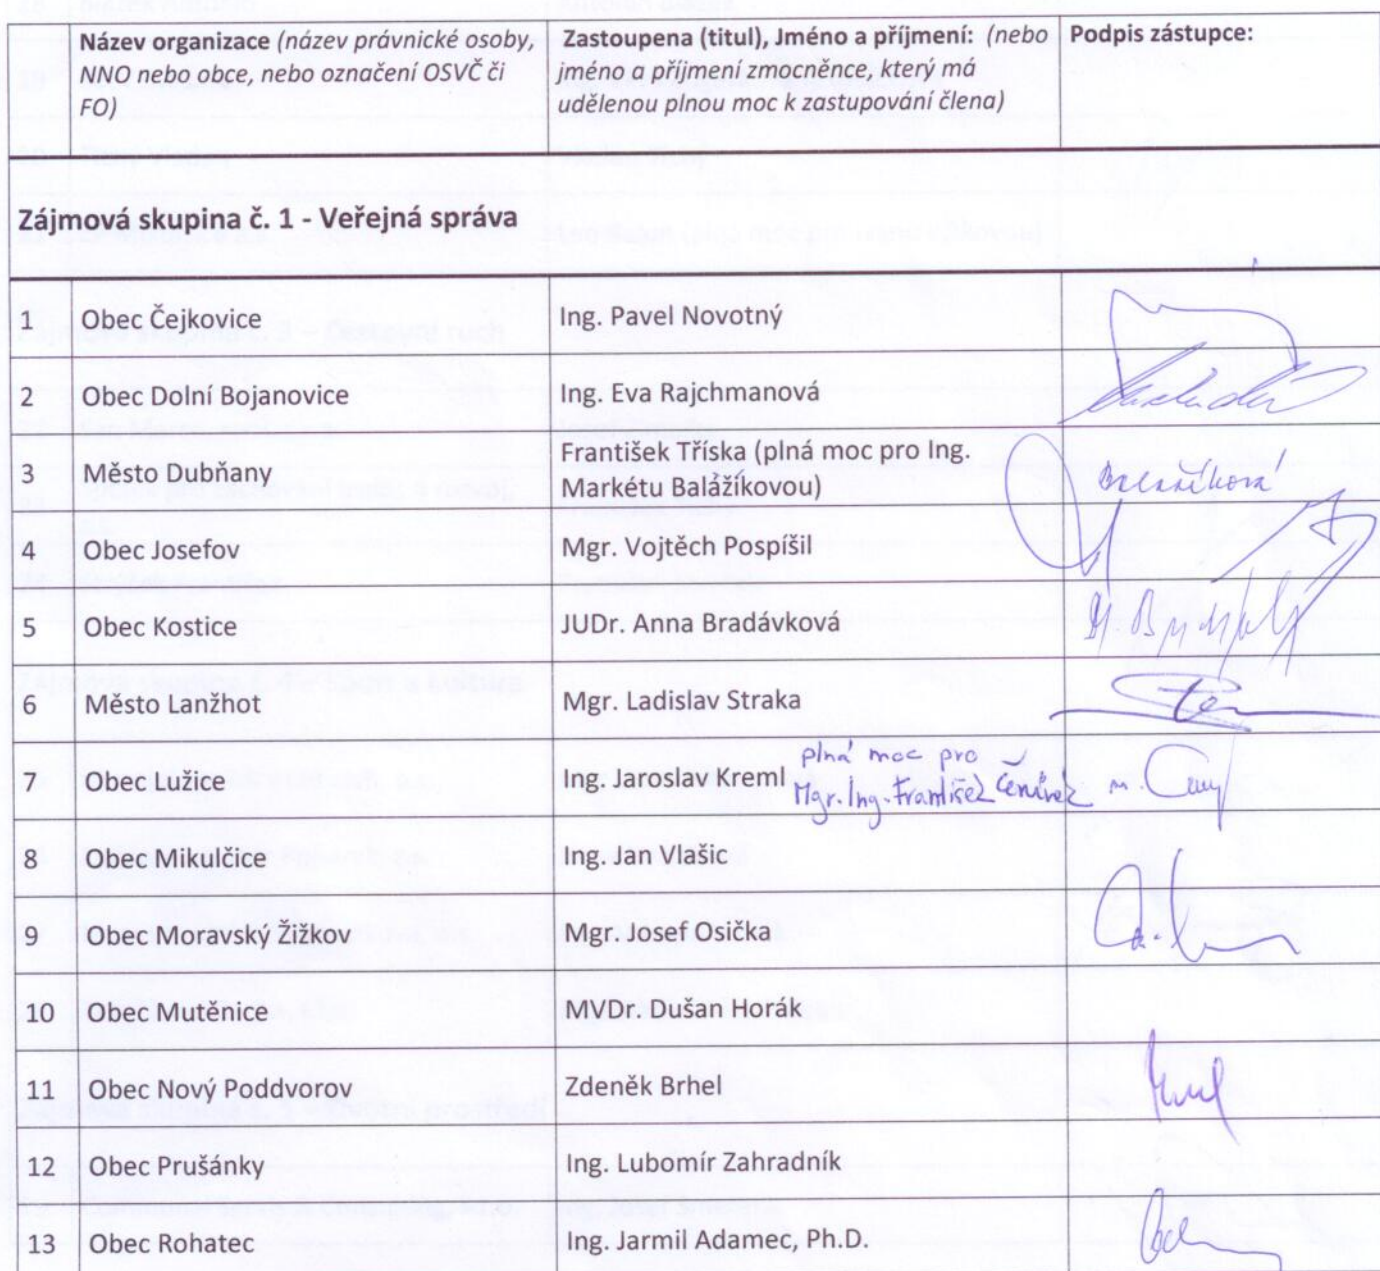 Název organizace (název právnické osoby, NNO nebo obce, nebo označení OSVČ či FO)
Zastoupena (titul), Jméno a příjmení: (nebo jméno a příjmení zmocněnce, který má udělenou plnou moc k zastupování člena)
Podpis zástupce:
Zájmová skupina č. 1 - Veřejná správa
1 Obec Čejkovice Ing. Pavel Novotný
2 Obec Dolní Bojanovice Ing. Eva Rajchmanová
3 Město Dubňany František Tříska (plná moc pro Ing. Markétu Balážíkovou)
4 Obec Josefov Mgr. Vojtěch Pospíšil
5 Obec Kostice JUDr. Anna Bradávková
6 Město Lanžhot Mgr. Ladislav Straka
7 Obec Lužice Ing. Jaroslav Kreml plná moc pro
Mgr. Ing. František
8 Obec Mikulčice Ing. Jan Vlašic
9 Obec Moravský Žižkov Mgr. Josef Osička
10 Obec Mutěnice MVDr. Dušan Horák
11 Obec Nový Poddvorov Zdeněk Brhel
12 Obec Prušánky Ing. Lubomír Zahradník
13 Obec Rohatec Ing. Jarmil Adamec, Ph.D.